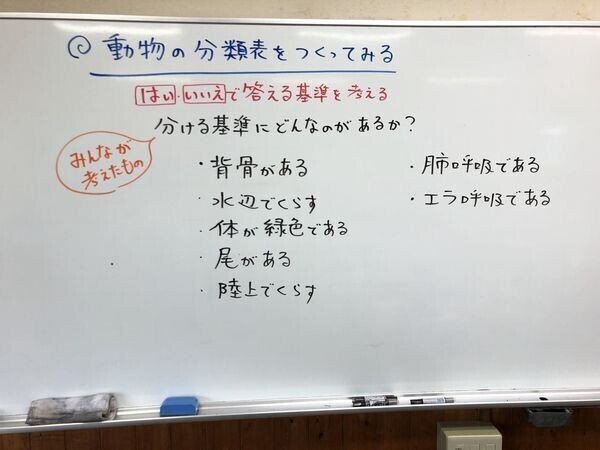 動物の分類表をつくってみる
はい・いいえで答える基準を考える
分ける基準にどんなのがあるか?
みんなが
考えたもの
・背骨がある
・水辺でくらす
・体が緑色である
・尾がある
・陸上でくらす
・肺呼吸である
・エラ呼吸である